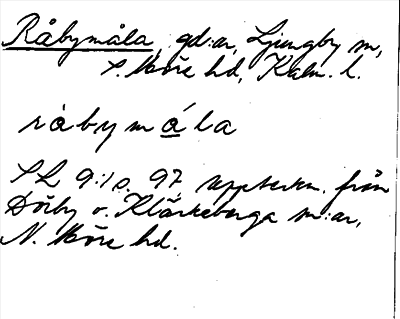 Råbymåla, gd:ar, Ljungby sn,
S. Möre hd, Kalm. l.
ràbymála
SL 9:1 s. 97 uppteckn. från
Dörby o. Kläckeberga sn:ar,
N. Möre hd.